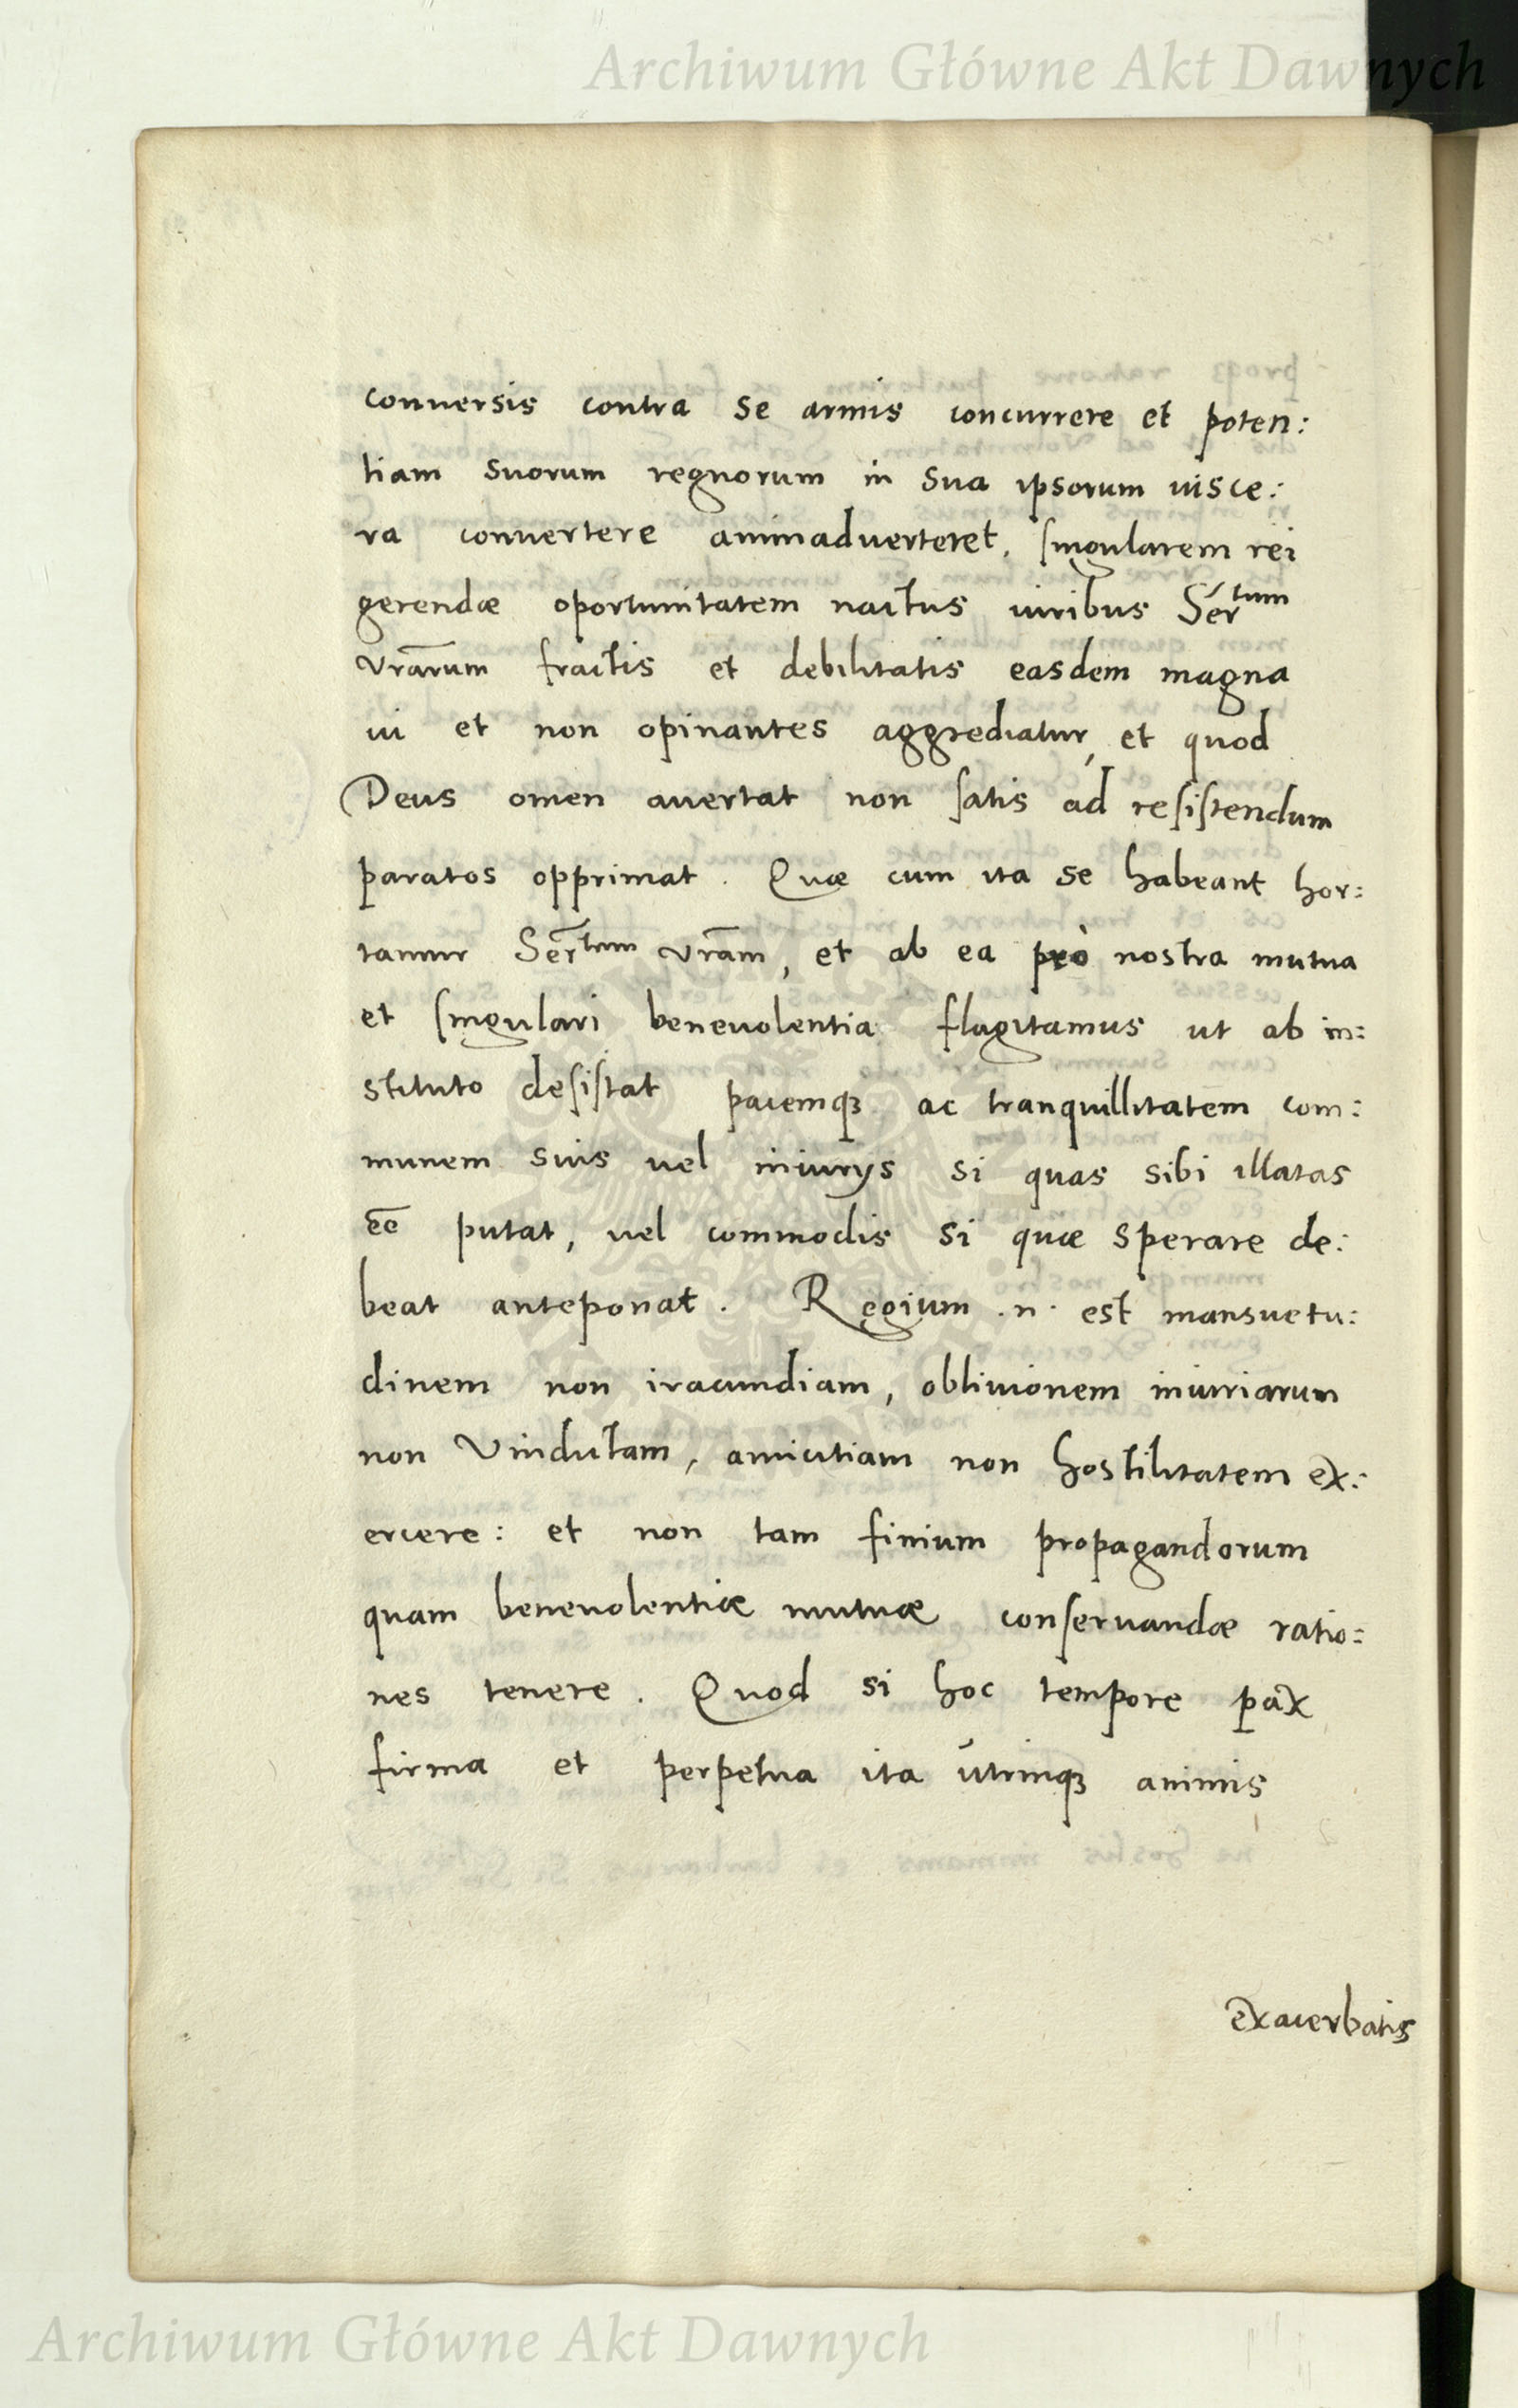 Archiwum Główne Akt Dawnych
conuersis contra se armis concurrere et poten:
tiam suorum regnorum in sua ipsorum uisce:
ra conuertere animaduerteret, singularem rei
gerendæ oportunitatem nactus uiribus Sertum
vrãrum fractis et debilitatis easdem magna
ui et non opinantes aggrediatur, et quod
Deus omen auertat non satis ad resistendum
paratos opprimat. Quæ cum ita se habeant hor:
tamur Sertem vrãm, et ab ea prò nostra mutua
et singulari beneuolentia flagitamus ut ab in:
stituto desistat pacemqꝫ ac tranquillitatem com:
munem suis uel iniurijs si quas sibi illatas
eẽ putat, uel commodis si quæ sperare de:
beat anteponat. Regium .n. est mansuetu:
dinem non iracundiam, obliuionem iniuriarum
non vindictam, amicitiam non hostilitatem ex:
ercere: et non tam finium propagandorum
quam beneuolentiæ mutuæ conseruandæ ratio:
nes tenere. Quod si hoc tempore pax
firma et perpetua ita utrinqꝫ animis
exacerbatis
Archiwum Główne Akt Dawnych